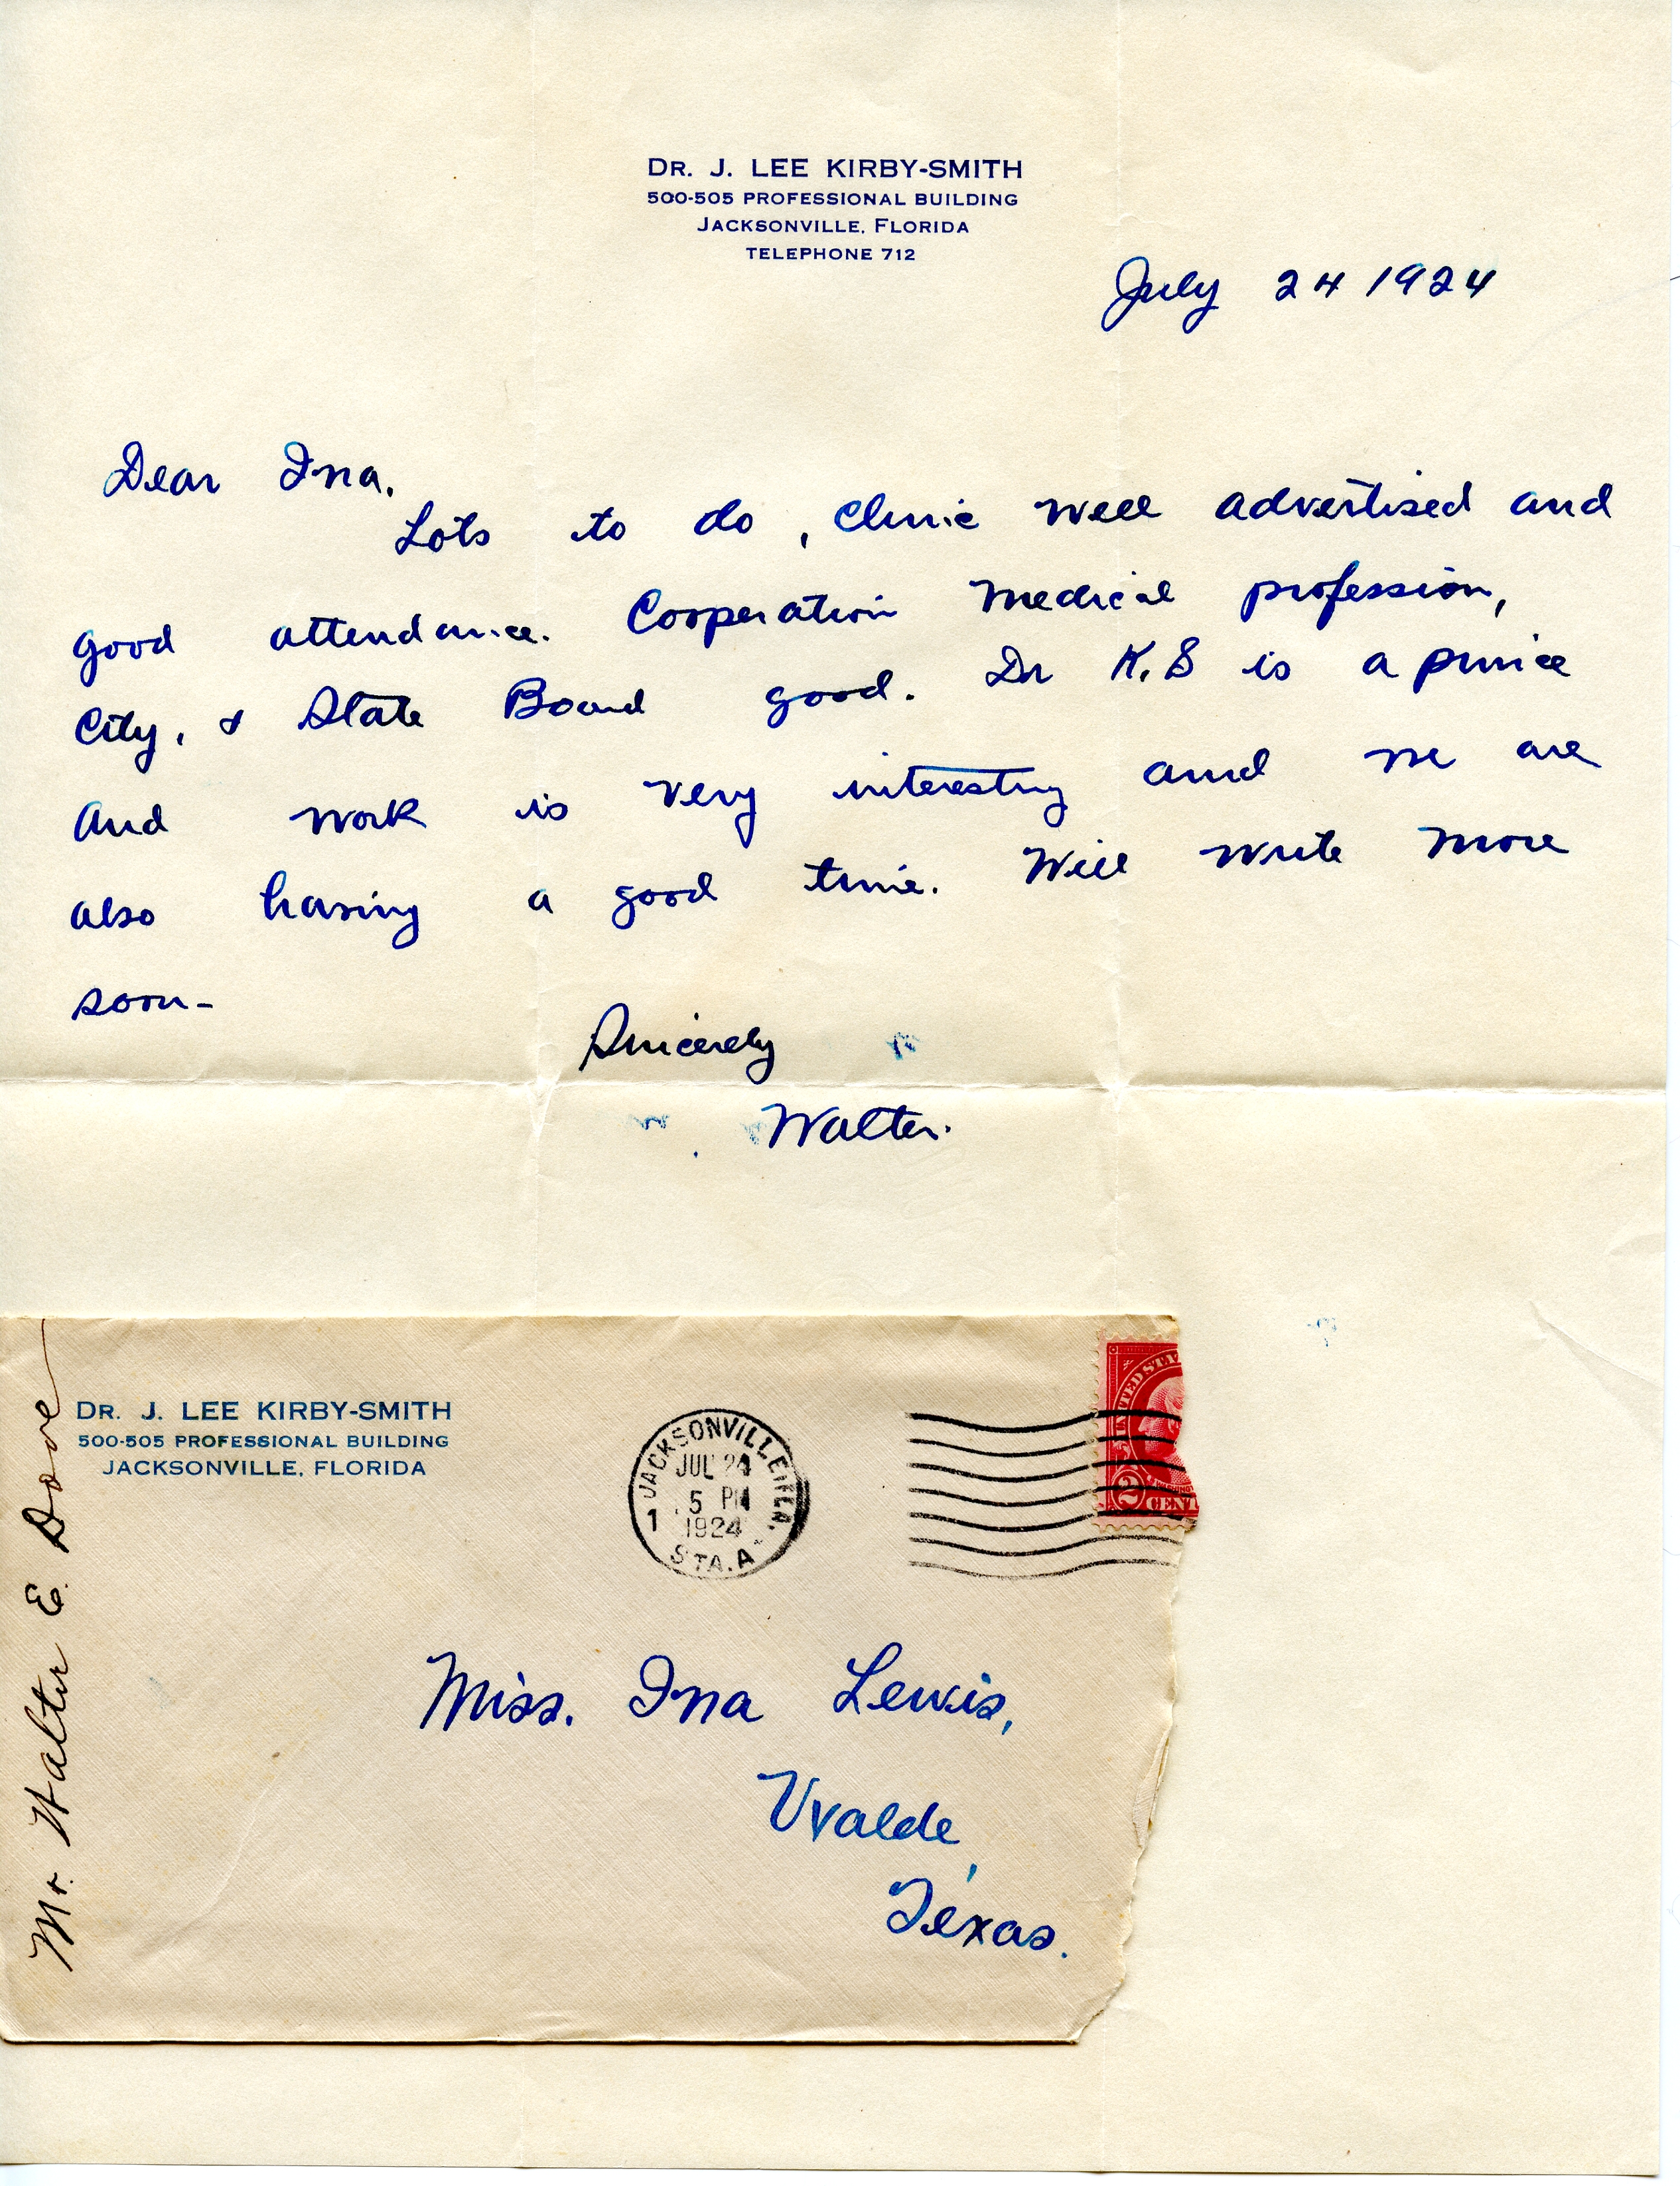 DR. J. LEE KIRBY-SMITH
500-505 PROFESSIONAL BUILDING
JACKSONVILLE, FLORIDA
TELEPHONE 712
July 24 1924
Dear Ina,
Lots to do, Clinic well advertised and
good attendance. Cooperation Medical profession,
City, & State Board good. Dr K.S is a prince
and work is very interesting and we are
also having a good time. Will write more
soon-
Sincerely
Walter.
Mr. Walter E. Dove
DR. J. LEE KIRBY-SMITH
500-505 PROFESSIONAL BUILDING
JACKSONVILLE, FLORIDA
JACKSONVILLE, FLA.
JUL 24
5 PM
1924
1
STA. A
UNITED STA
2
CENT
Miss. Ina Lewis,
Uvalde,
Texas.